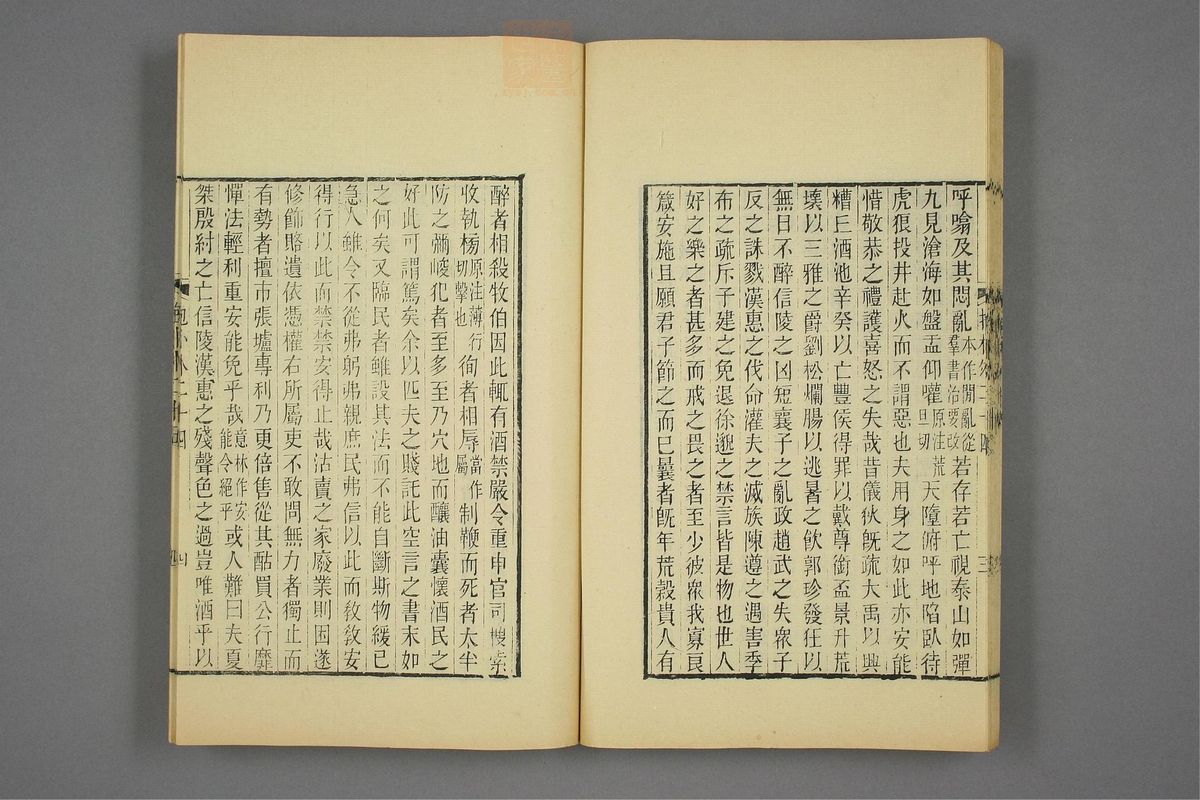 呼噏及其悶亂本作閒亂從羣書治要改若存若亡視泰山如彈
九見滄海如盤盂仰嚾原注荒旦切天墮俯呼地陷臥待
虎狼投井赴火而不謂惡也夫用身之如此亦安能
惜敬恭之禮護喜怒之失哉昔儀狄旣疏大禹以興
糟丘酒池辛癸以亡豐侯得罪以戴尊銜盃景升荒
壞以三雅之爵劉松爛腸以逃暑之飮郭珍發狂以
無日不醉信陵之凶短襄子之亂政趙武之失衆子
反之誅戮漢惠之伐命灌夫之滅族陳遵之遇害季
布之疏斥子建之免退徐邈之禁言皆是物也世人
好之樂之者甚多而戒之畏之者至少彼衆我寡良
箴安施且願君子節之而已曩者旣年荒穀貴人有
醉者相殺牧伯因此輒有酒禁嚴令重申官司搜索
收執榜原注薄行切擊也徇者相辱當作屬制鞭而死者太半
防之彌峻犯者至多至乃穴地而釀油囊懷酒民之
好此可謂篤矣余以匹夫之賤託此空言之書末如
之何矣又臨民者雖設其法而不能自斷斯物緩己
急人雖令不從弗躬弗親庶民弗信以此而敎敎安
得行以此而禁禁安得止哉沽賣之家廢業則困遂
修飾賂遺依憑權右所屬吏不敢問無力者獨止而
有勢者擅市張壚專利乃更倍售從其酤買公行靡
憚法輕利重安能免乎哉意林作安能令絕乎或人難曰夫夏
桀殷紂之亡信陵漢惠之殘聲色之過豈唯酒乎以